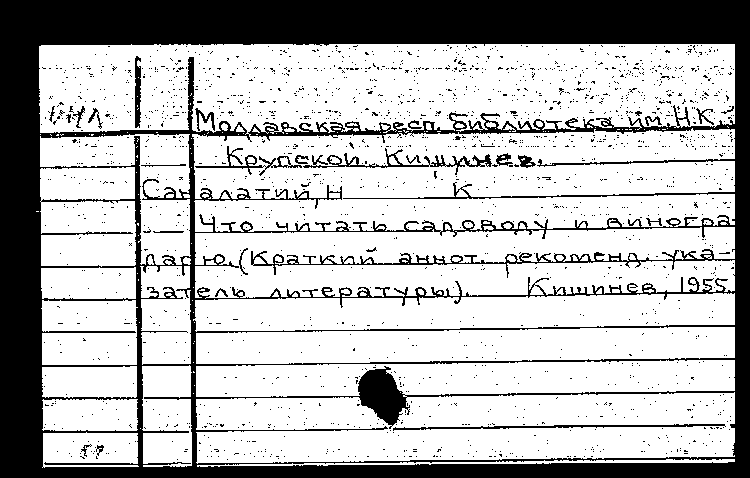 Молдавская респ. библиотека им. Н.К.
Крупской. Кишинев.
Саналатий, Н К
Что читать садоводу и виногра-
дарю. (Краткий аннот. рекоменд. ука-
затель литературы). Кишинев, 1955.